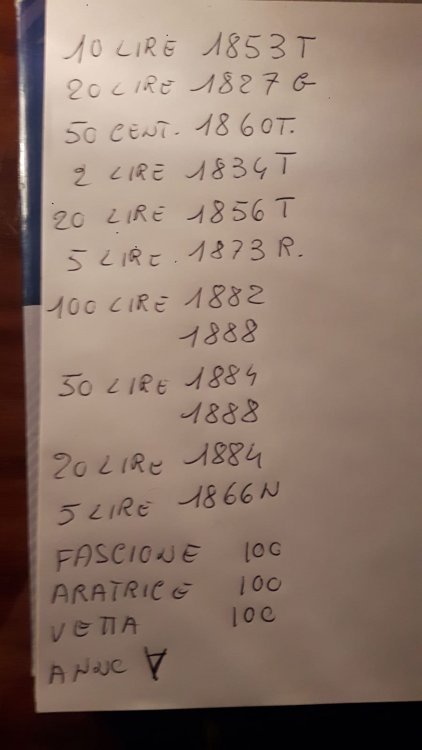 10 LIRE 1853 T
20 LIRE 1827 G
50 CENT. 1860 T.
2 LIRE 1834 T
20 LIRE 1856 T
5 LIRE. 1873 R.
100 LIRE 1882
1888
50 LIRE 1884
1888
20 LIRE 1884
5 LIRE 1866 N
FASCIONE 100
ARATRICE 100
VETTA 100
ANNO V